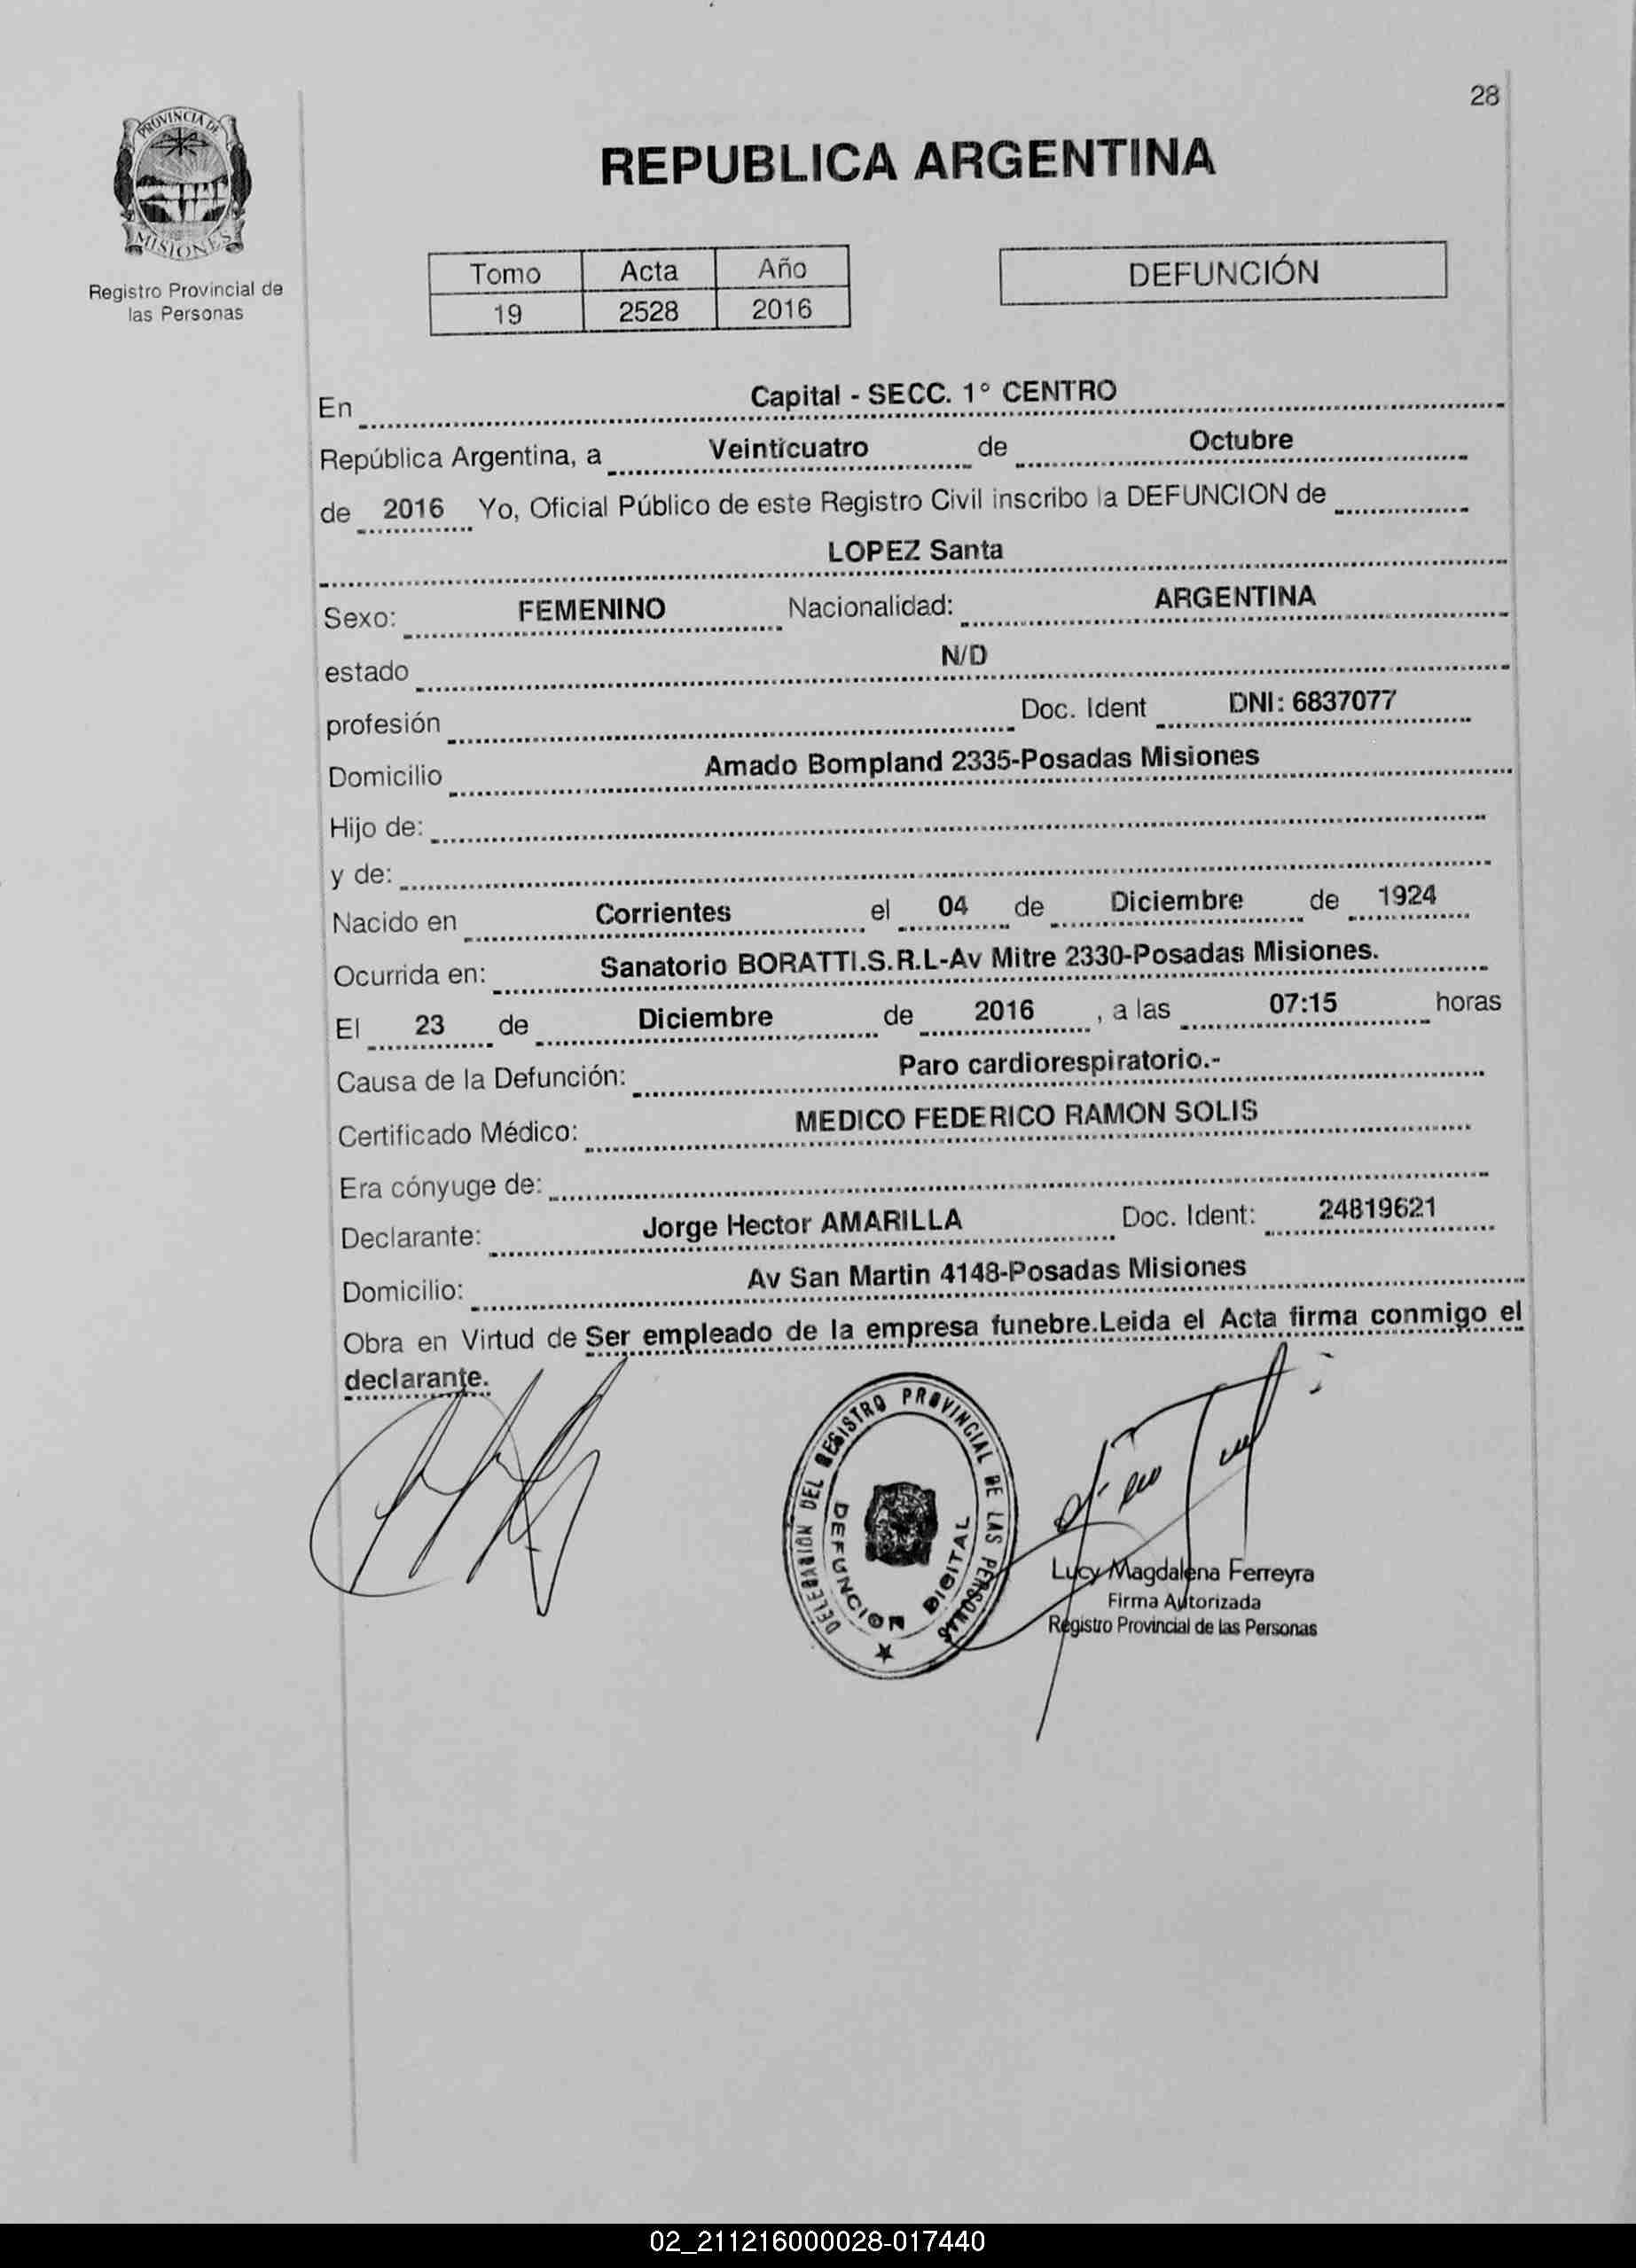 28
PROVINCIA DE
MISIONES
Registro Provincial de
las Personas
REPUBLICA ARGENTINA
Tomo Acta Año
19 2528 2016
DEFUNCIÓN
En Capital - SECC. 1° CENTRO
República Argentina, a Veinticuatro de Octubre
de 2016 Yo, Oficial Público de este Registro Civil inscribo la DEFUNCION de
LOPEZ Santa
Sexo: FEMENINO Nacionalidad: ARGENTINA
estado N/D
profesión Doc. Ident DNI: 6837077
Domicilio Amado Bompland 2335-Posadas Misiones
Hijo de:
y de:
Nacido en Corrientes el 04 de Diciembre de 1924
Ocurrida en: Sanatorio BORATTI.S.R.L-Av Mitre 2330-Posadas Misiones.
El 23 de Diciembre de 2016 , a las 07:15 horas
Causa de la Defunción: Paro cardiorespiratorio.-
Certificado Médico: MEDICO FEDERICO RAMON SOLIS
Era cónyuge de:
Declarante: Jorge Hector AMARILLA Doc. Ident: 24819621
Domicilio: Av San Martin 4148-Posadas Misiones
Obra en Virtud de Ser empleado de la empresa funebre.Leida el Acta firma conmigo el
declarante.
DELEGACION DEL REGISTRO PROVINCIAL DE LAS PERSONAS
DEFUNCION DIGITAL
Lucy Magdalena Ferreyra
Firma Autorizada
Registro Provincial de las Personas
02_211216000028-017440